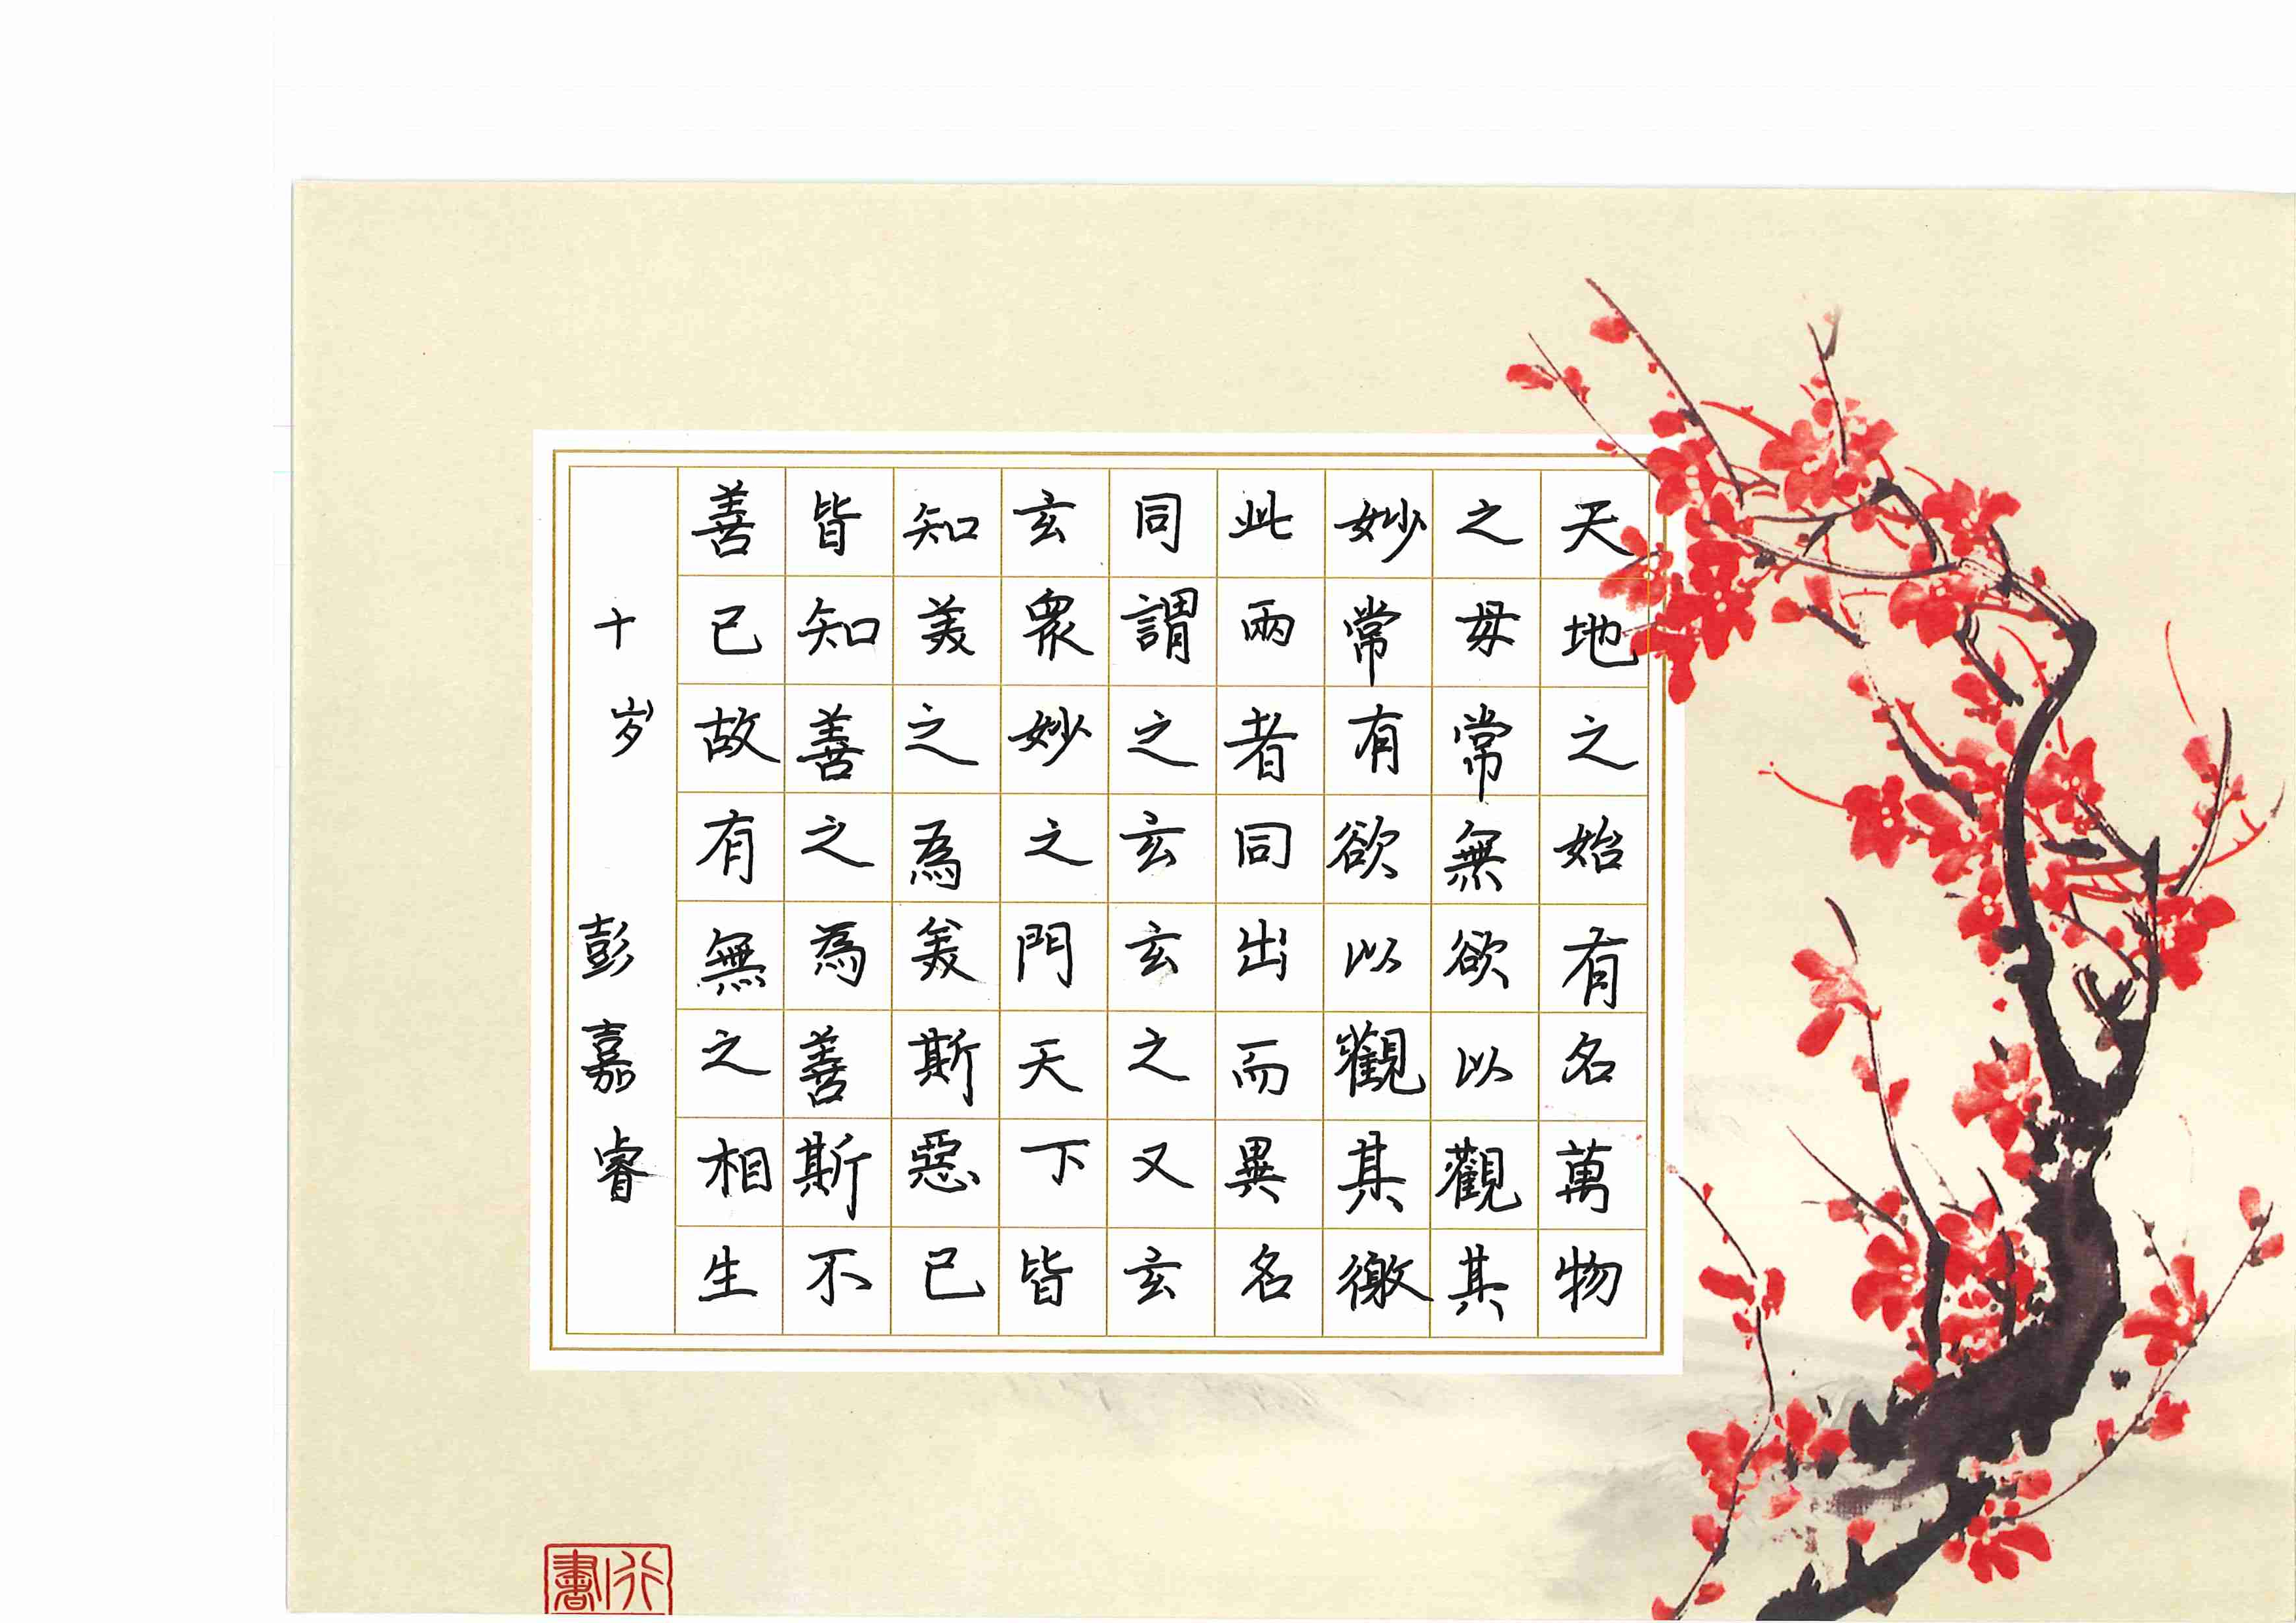 天地之始有名萬物
之母常無欲以觀其
妙常有欲以觀其徼
此兩者同出而異名
同謂之玄玄之又玄
玄衆妙之門天下皆
知美之為美斯惡已
皆知善之為善斯不
善已故有無之相生
十岁 彭嘉睿
行書